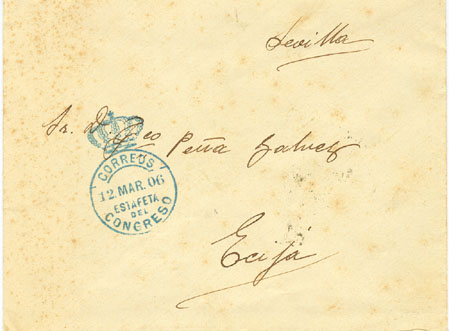 Sevilla
Sr. D. Leo Peña Galvez
CORREOS
12 MAR. 06
ESTAFETA
DEL
CONGRESO
Ecija